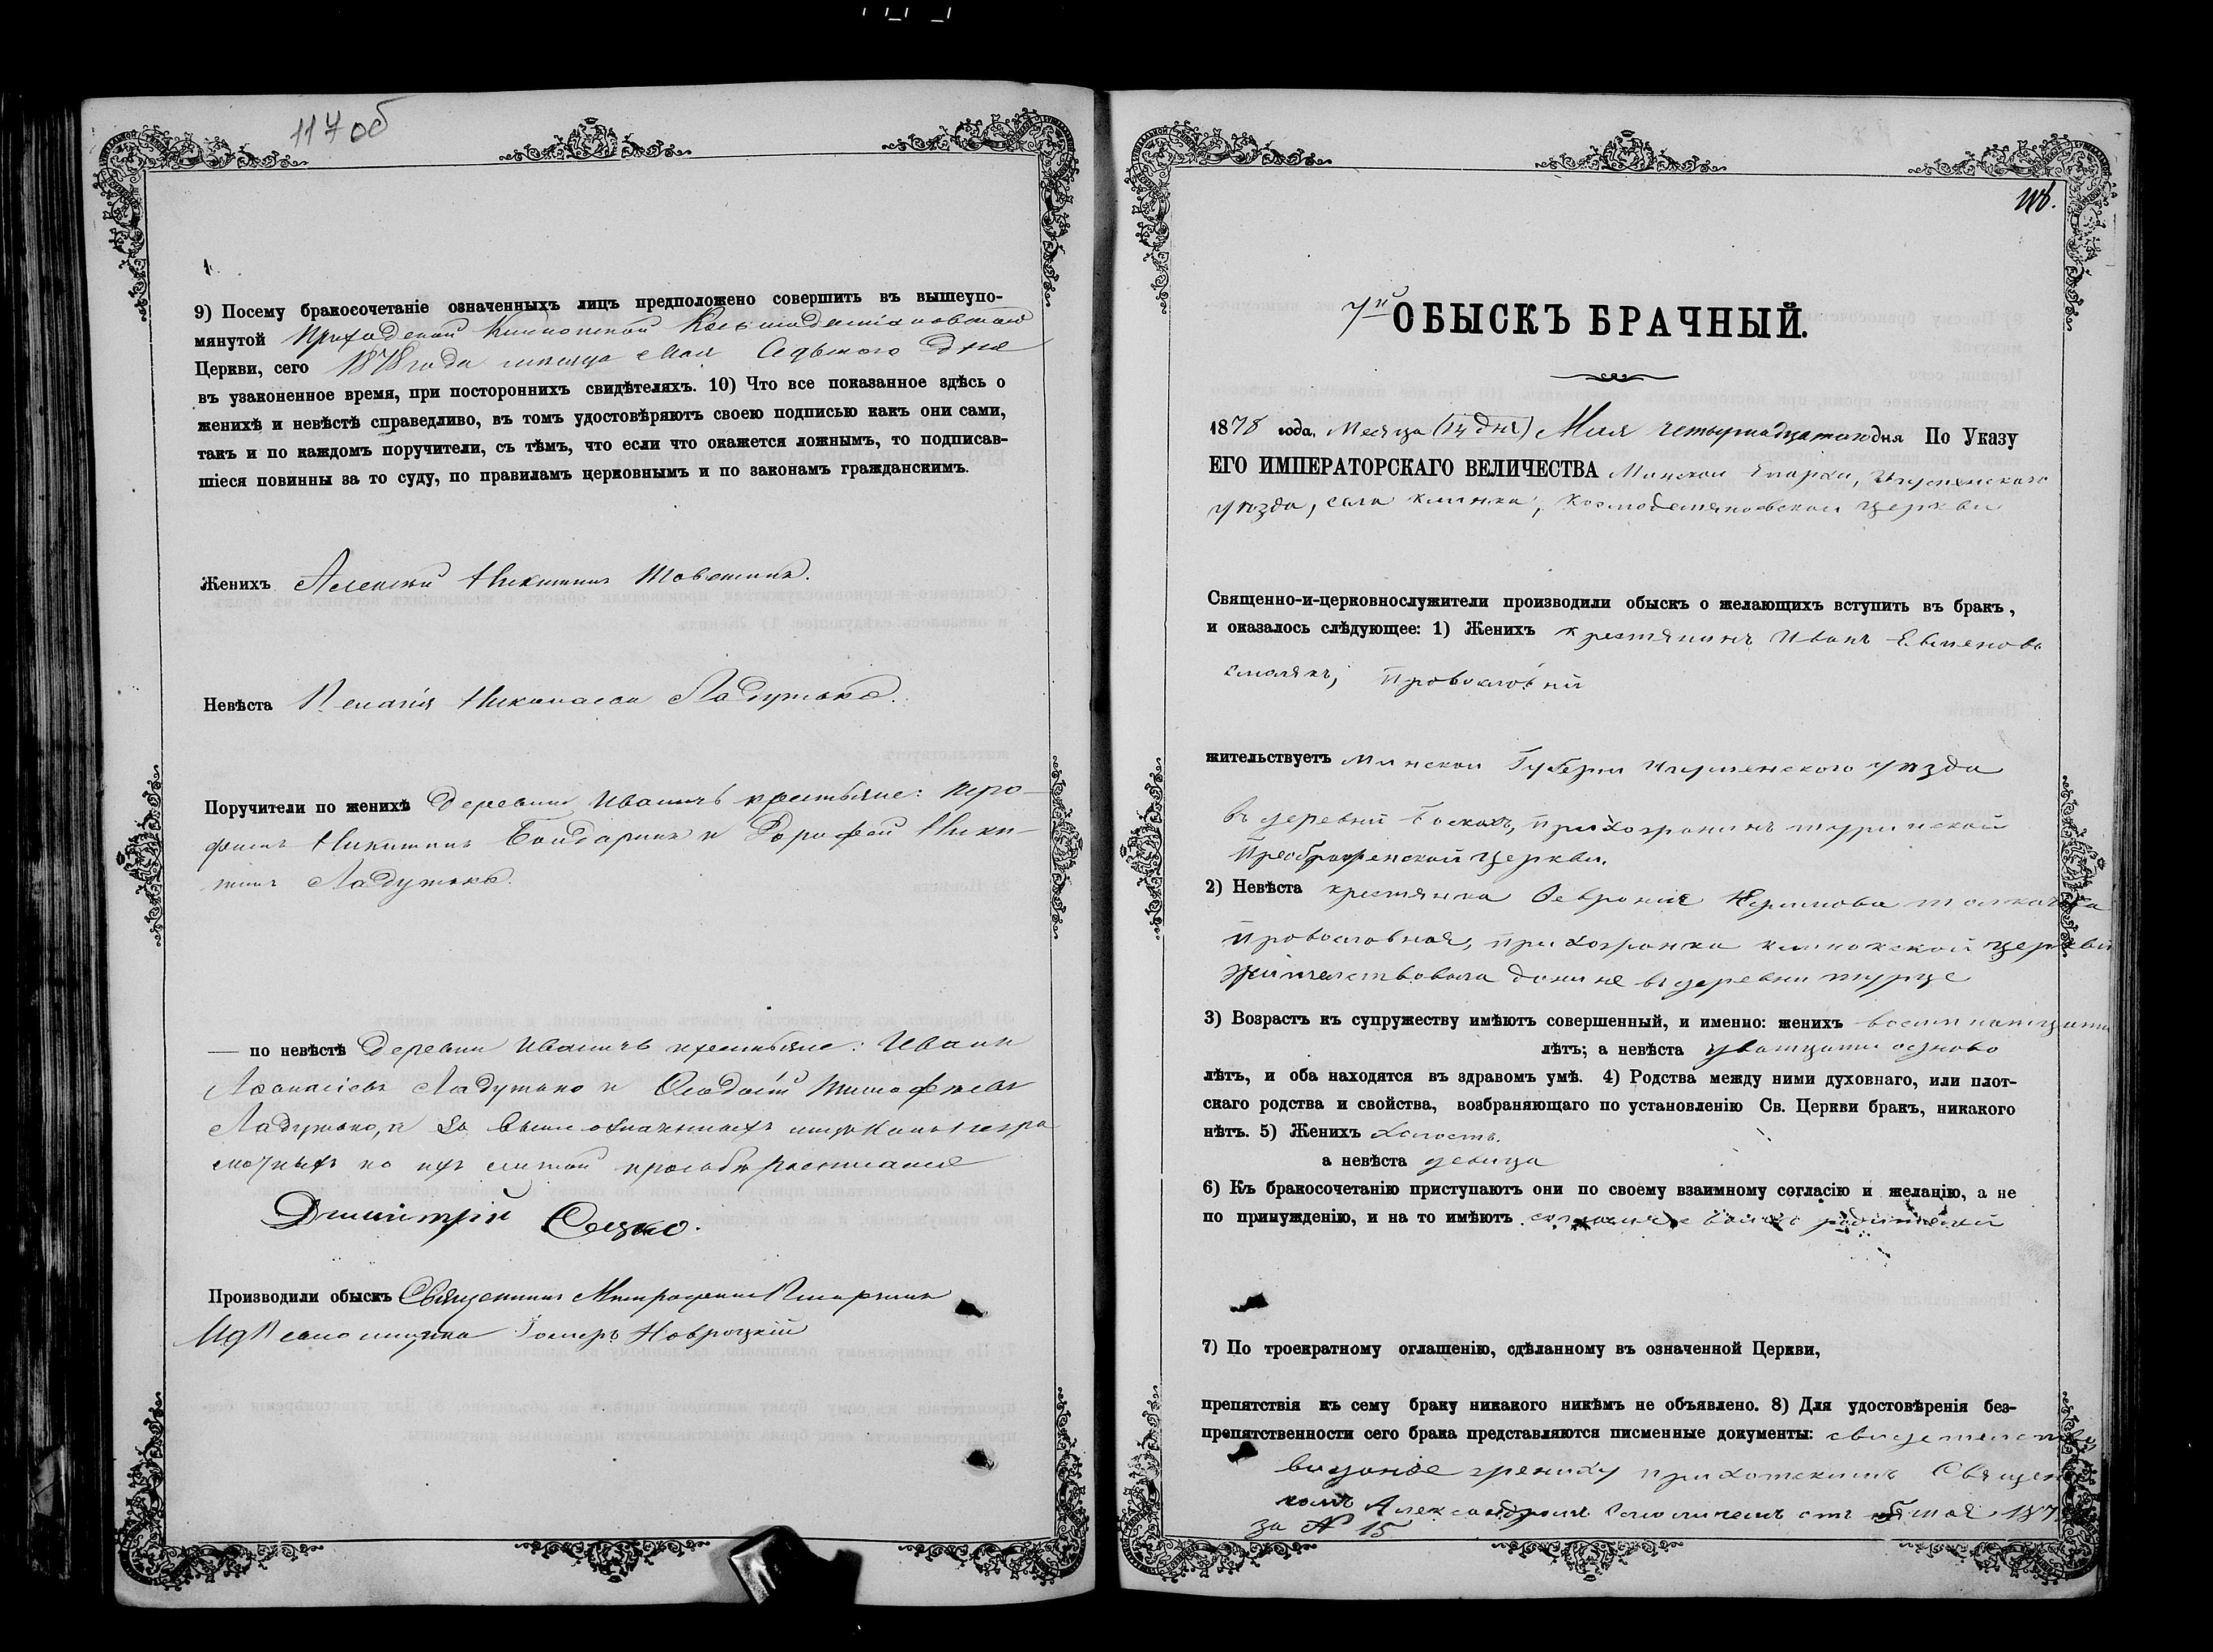 117 об
9) Посему бракосочетаніе означенныхъ лицъ предположено совершить въ вышеупо-
мянутой Приходской
Церкви, сего 1878 года месяца Мая Седьмого дня
въ узаконенное время, при постороннихъ свидѣтеляхъ. 10) Что все показанное здѣсь о
женихѣ и невѣстѣ справедливо, въ томъ удостовѣряютъ своею подписью какъ они сами,
такъ и по каждомъ поручители, съ тѣмъ, что если что окажется ложнымъ, то подписав-
шіеся повинны за то суду, по правиламъ церковнымъ и по законамъ гражданскимъ.
Женихъ Алексѣй Никитинъ
Невѣста Пелагія Ладутько.
Поручители по женихѣ Деревни Иваничъ крестьяне: Тро-
фимъ Никитинъ Бондарикъ и Дорофей Ники-
тинъ Ладутько.
— по невѣстѣ Деревни Иваничъ крестьяне: Иванъ
Афанасіевъ Ладутько и Тимофеевъ
Ладутько, а за вышеозначенныхъ негра
мотныхъ по ихъ личной прозьбѣ росписался
Димитрій Сацко.
Производили обыскъ Священникъ Митрофанъ
Навроцкій
118.
7й ОБЫСКЪ БРАЧНЫЙ.
1878 года, Месяца (14 дня) Мая четырнадцатого дня По Указу
ЕГО ИМПЕРАТОРСКАГО ВЕЛИЧЕСТВА Минской Епархи, Игуменскаго
уѣзда, села Клинка, Космодемяновской церкви
Священно-и-церковнослужители производили обыскъ о желающихъ вступить въ бракъ,
и оказалось слѣдующее: 1) Женихъ крестянинъ Иванъ Евменовъ
Смолякъ, православній
жительствуетъ Минской Губерни Игуменского уѣзда
въ деревни прихозранинъ туринской
Преображенской церкви.
2) Невѣста крестянка Феврония
православная, прихозранка клинокской церкви
жителствовала донине въ деревни турце
3) Возрастъ къ супружеству имѣютъ совершенный, и именно: женихъ
лѣтъ; а невѣста
лѣтъ, и оба находятся въ здравомъ умѣ. 4) Родства между ними духовнаго, или плот-
скаго родства и свойства, возбраняющаго по установленію Св. Церкви бракъ, никакого
нѣтъ. 5) Женихъ холостъ.
а невѣста девица
6) Къ бракосочетанію приступаютъ они по своему взаимному согласію и желанію, а не
по принужденію, и на то имѣютъ согласие своихъ родителей
7) По троекратному оглашенію, сдѣланному въ означенной Церкви,
препятствія къ сему браку никакого никѣмъ не объявлено. 8) Для удостовѣренія без-
препятственности сего брака представляются писменные документы: свидетелство
жениху Священ
комъ Александромъ отъ мая 187
за № 15